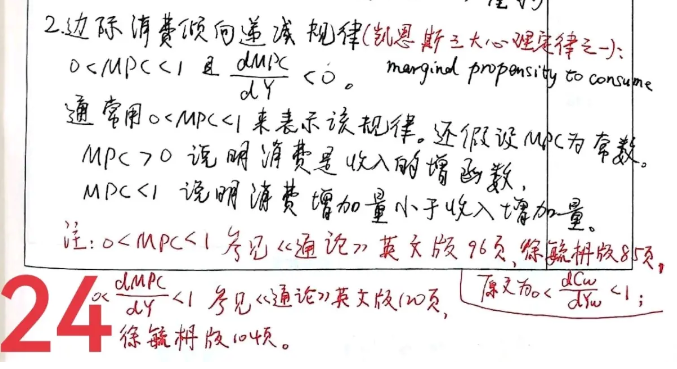 2.边际消费倾向递减规律(凯恩斯三大心理定律之一):
0<MPC<1 且 dMPC/dY <0。 marginal propensity to consume
通常用0<MPC<1来表示该规律。还假设MPC为常数。
MPC>0 说明消费是收入的增函数,
MPC<1 说明消费增加量小于收入增加量。
注:0<MPC<1 参见《通论》英文版96页,徐毓枬版85页,
原文为0< dCw/dYw <1;
0< dMPC/dY <1 参见《通论》英文版120页,
徐毓枬版104页。
24